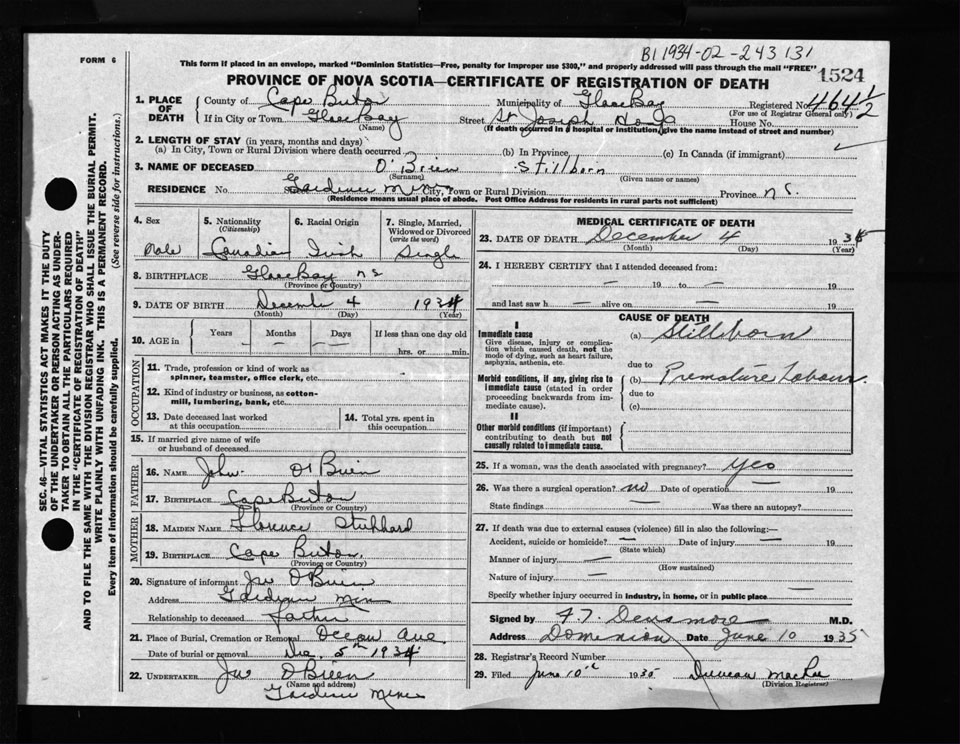 B1 1934-02-243131
FORM 6
This form if placed in an envelope, marked "Dominion Statistics—Free, penalty for improper use $300," and properly addressed will pass through the mail "FREE"
1524
PROVINCE OF NOVA SCOTIA—CERTIFICATE OF REGISTRATION OF DEATH
1. PLACE OF DEATH
County of Cape Breton Municipality of Glace Bay Registered No. 464 1/2
(For use of Registrar General only)
If in City or Town Glace Bay Street St Joseph House No.
(Name) (If death occurred in a hospital or institution, give the name instead of street and number)
2. LENGTH OF STAY (in years, months and days)
(a) In City, Town or Rural Division where death occurred (b) In Province (c) In Canada (if immigrant)
3. NAME OF DECEASED O'Brien Stillborn
(Surname) (Given name or names)
RESIDENCE No. Gardiner Mines City, Town or Rural Division Province N S.
(Residence means usual place of abode. Post Office Address for residents in rural parts not sufficient)
4. Sex 5. Nationality (Citizenship) 6. Racial Origin 7. Single, Married, Widowed or Divorced (write the word)
Male Canadian Irish Single
8. BIRTHPLACE Glace Bay N S
(Province or Country)
9. DATE OF BIRTH December 4 1934
(Month) (Day) (Year)
10. AGE in Years Months Days If less than one day old
— — — hrs. or min.
OCCUPATION
11. Trade, profession or kind of work as spinner, teamster, office clerk, etc.
12. Kind of industry or business, as cotton-mill, lumbering, bank, etc.
13. Date deceased last worked at this occupation
14. Total yrs. spent in this occupation
15. If married give name of wife or husband of deceased
FATHER
16. NAME John O'Brien
17. BIRTHPLACE Cape Breton
(Province or Country)
MOTHER
18. MAIDEN NAME Florence Stubbard
19. BIRTHPLACE Cape Breton.
(Province or Country)
20. Signature of informant Jno O'Brien
Address Gardiner Min
Relationship to deceased father
21. Place of Burial, Cremation or Removal Ocean Ave
Date of burial or removal Dec. 5th 1934
22. UNDERTAKER Jno O'Brien
(Name and address)
Gardiner Mines
MEDICAL CERTIFICATE OF DEATH
23. DATE OF DEATH December 4 1934
(Month) (Day) (Year)
24. I HEREBY CERTIFY that I attended deceased from:
— 19 to — 19
and last saw h — alive on — 19
CAUSE OF DEATH
I
Immediate cause (a) Stillborn
Give disease, injury or complication which caused death, not the mode of dying, such as heart failure, asphyxia, asthenia, etc.
due to
Morbid conditions, if any, giving rise to immediate cause (stated in order proceeding backwards from immediate cause).
(b) Premature Labour.
due to
(c)
II
Other morbid conditions (if important) contributing to death but not causally related to immediate cause.
25. If a woman, was the death associated with pregnancy? Yes
26. Was there a surgical operation? no Date of operation — 19
State findings — Was there an autopsy?
27. If death was due to external causes (violence) fill in also the following:—
Accident, suicide or homicide? — Date of injury — 19
(State which)
Manner of injury —
(How sustained)
Nature of injury —
Specify whether injury occurred in industry, in home, or in public place
Signed by F. T. Densmore M.D.
Address Dominion Date June 10 1935
28. Registrar's Record Number
29. Filed June 10th 1935 Duncan MacRae
(Division Registrar)
SEC. 46—VITAL STATISTICS ACT MAKES IT THE DUTY
OF THE UNDERTAKER OR PERSON ACTING AS UNDER-
TAKER TO OBTAIN ALL THE PARTICULARS REQUIRED
IN THE "CERTIFICATE OF REGISTRATION OF DEATH"
AND TO FILE THE SAME WITH THE DIVISION REGISTRAR WHO SHALL ISSUE THE BURIAL PERMIT.
WRITE PLAINLY WITH UNFADING INK. THIS IS A PERMANENT RECORD.
Every item of information should be carefully supplied. (See reverse side for instructions.)